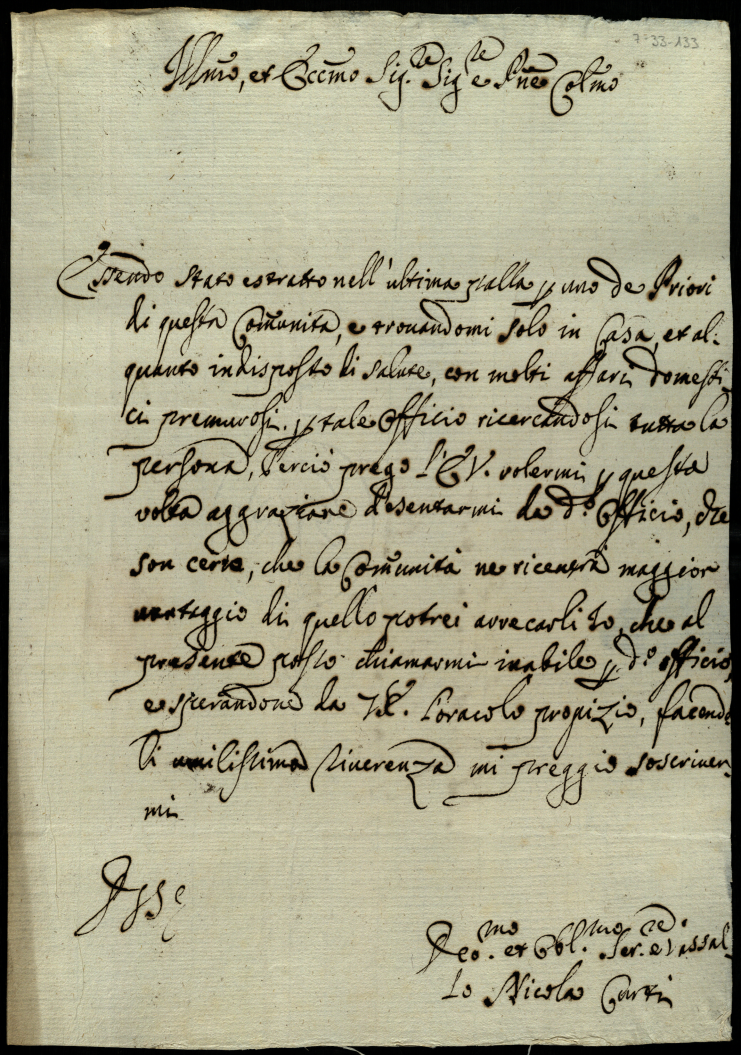 7-33-133
Illmo, et Eccmo Sig.re Sig.re e Pne Colmo
Essendo stato estratto nell'ultima palla p uno de Priori
di questa Comunità, e trouandomi solo in Casa, et al:
quanto indisposto di salute, con molti affari domesti
ci premurosi. p tale Officio ricercandosi tutta la
persona, Perciò prego l'E.V. volermi p questa
volta aggraziare d'esentarmi da d.o Officio, che
son certo, che la Comunità ne riceuerà maggior
vantaggio di quello potrei arrecarli Io, che al
presente posso chiamarmi inabile p d.o officio,
e sperandone da V.E. l'oracolo propizio, facendo
li umilissima riuerenza mi preggio soscriuer
mi
Deo.mo et Obl.mo Ser.re e Vassal
lo Nicola Curti